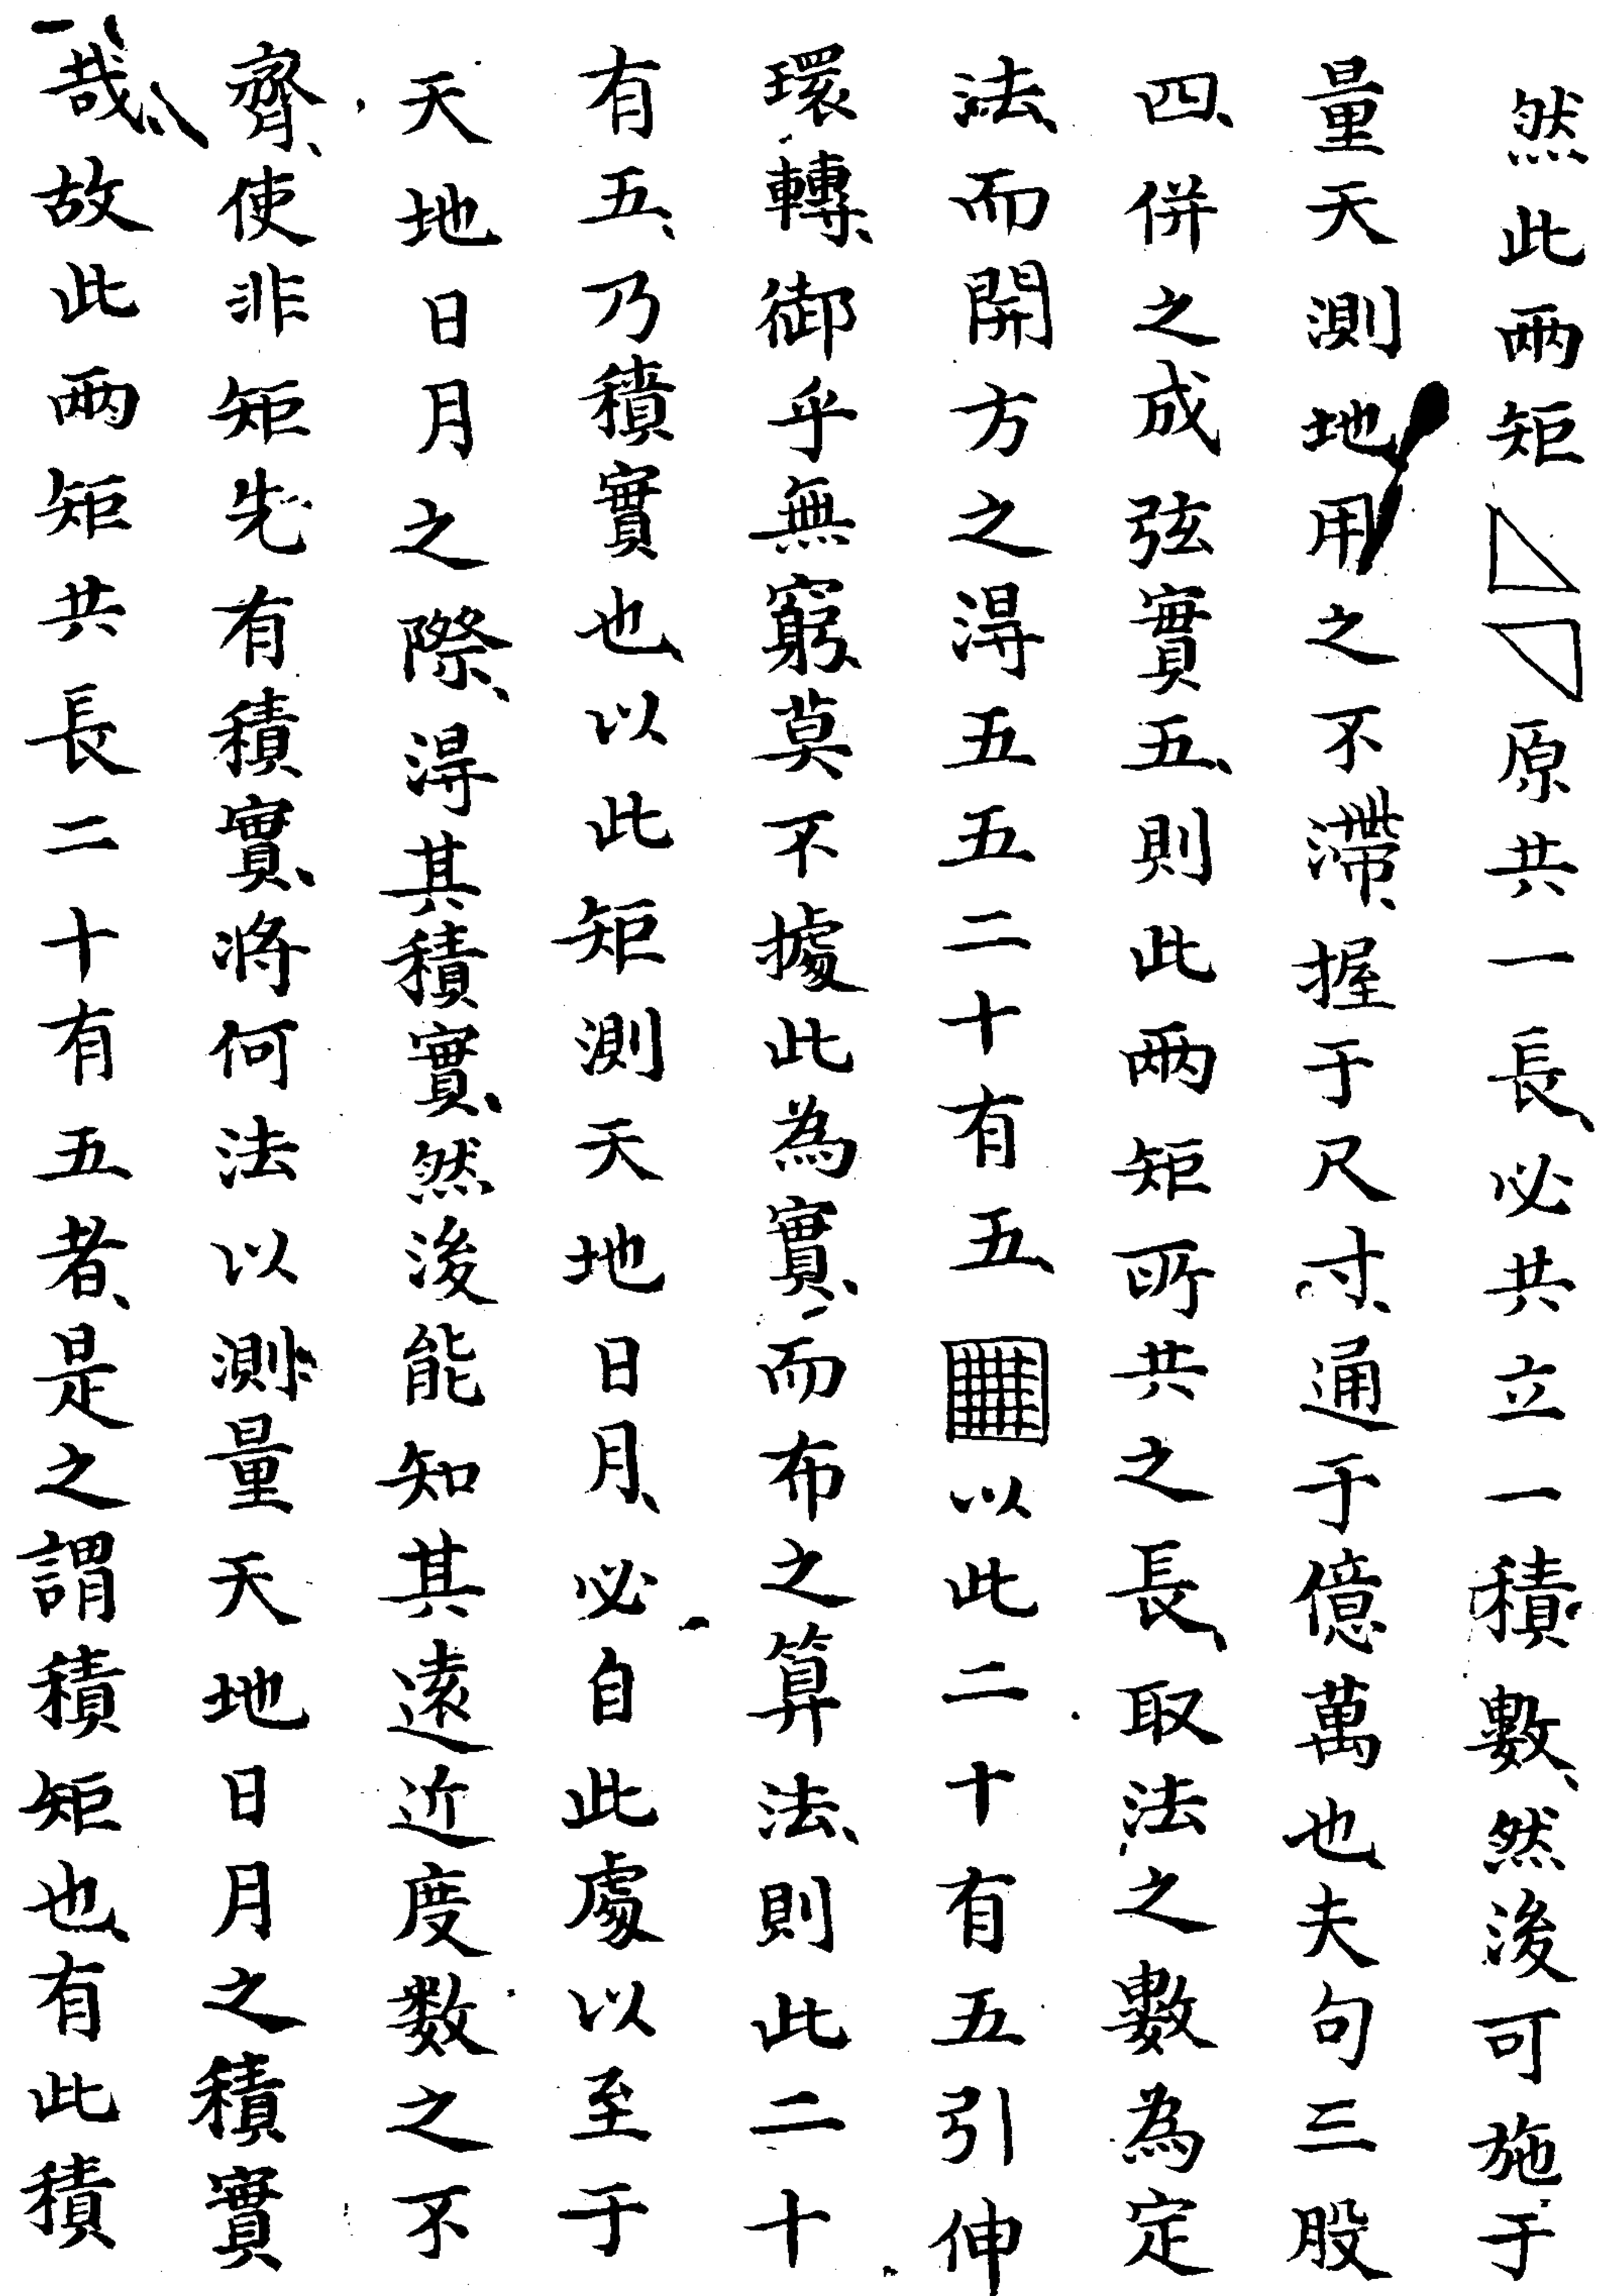 然此兩矩原共一長、必共立一積數、然後可施于
量天測地用之不滯、握于尺寸、通于億萬也、夫句三股
四、併之成弦實五、則此兩矩所共之長、取法之數為定
法、而開方之得五五二十有五、以此二十有五引伸
環轉、御乎無窮、莫不據此為實、而布之算法、則此二十
有五、乃積實也、以此矩測天地日月、必自此處以至于
天地日月之際、得其積實、然後能知其遠近度数之不
齊、使非矩先有積實、將何法以測量天地日月之積實
哉、故此兩矩共長二十有五者、是之謂積矩也、有此積